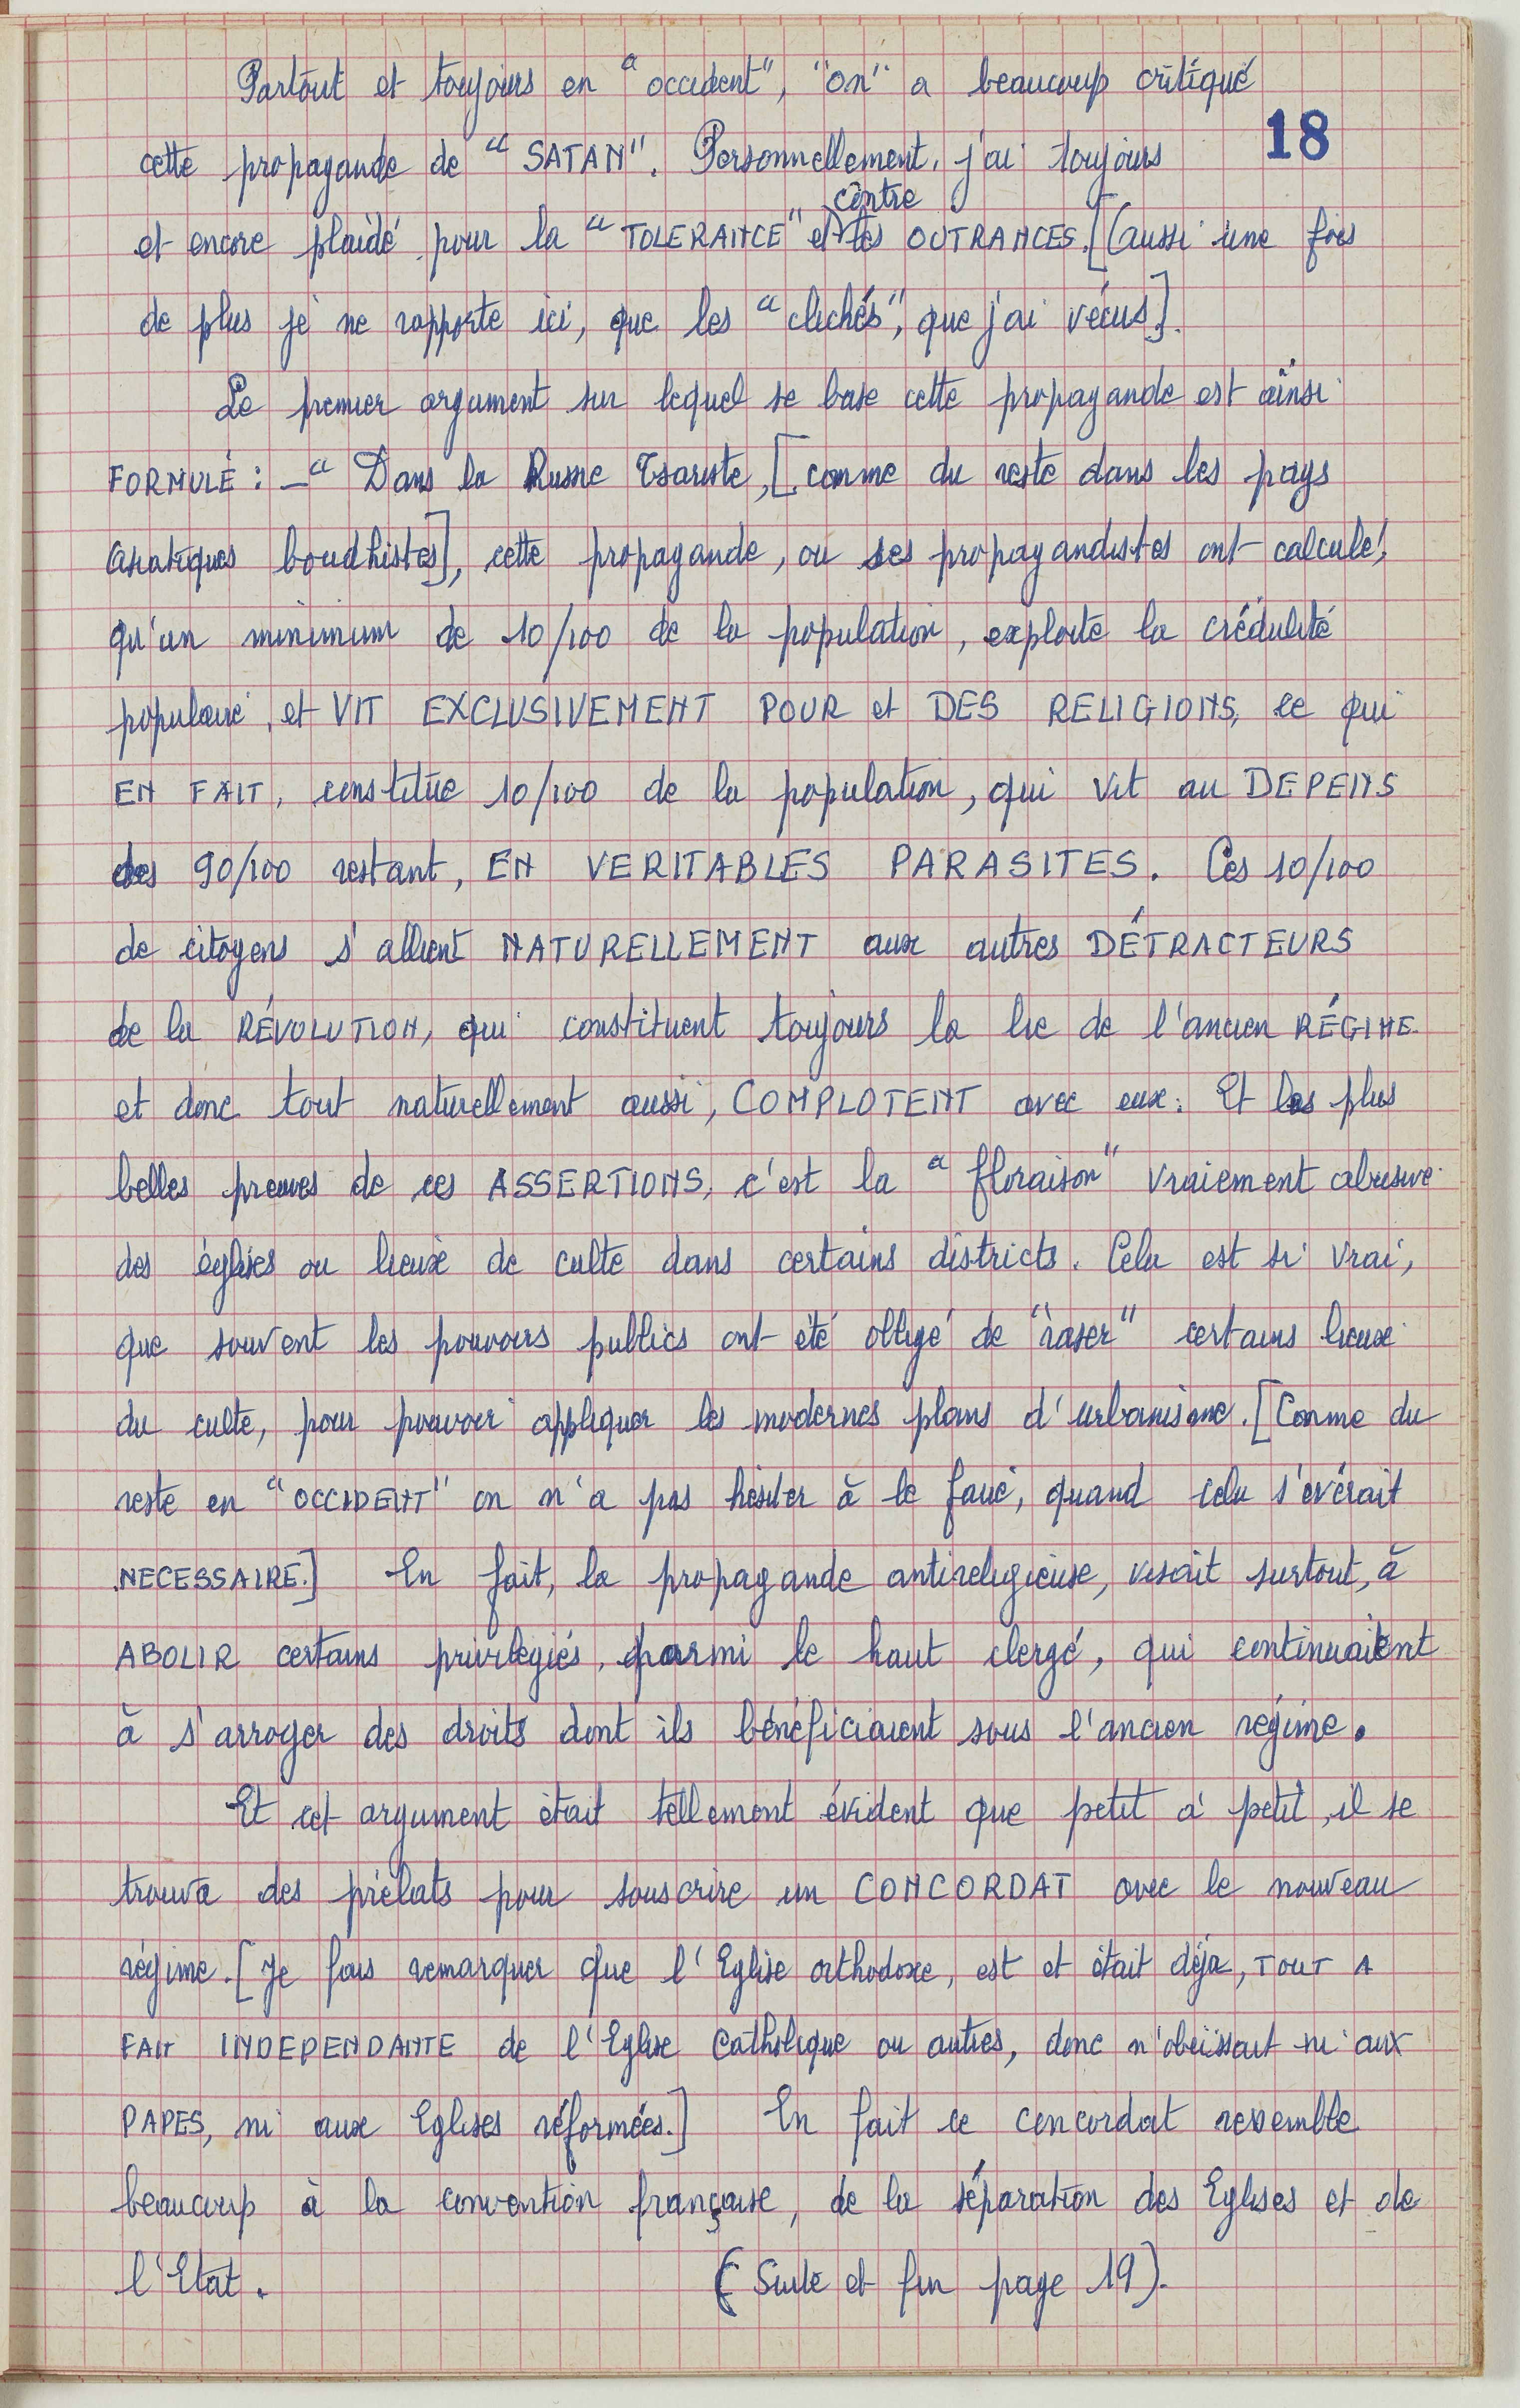 Partout et toujours en "occident", "on" a beaucoup critiqué
18
cette propagande de "SATAN". Personnellement, j'ai toujours
contre
et encore plaidé pour la "TOLERANCE" et les OUTRANCES. [(aussi une fois
de plus je ne rapporte ici, que les "clichés", que j'ai vécus].
Le premier argument sur lequel se base cette propagande est ainsi
FORMULÉ : - "Dans la Russie Tsariste, [comme du reste dans les pays
asiatiques boudhistes], cette propagande, ou ses propagandistes ont calculé,
qu'un minimum de 10/100 de la population, exploite la crédulité
populaire, et VIT EXCLUSIVEMENT POUR et DES RELIGIONS, ce qui
EN FAIT, constitue 10/100 de la population, qui vit au DEPENS
des 90/100 restant, EN VERITABLES PARASITES. Ces 10/100
de citoyens s'allient NATURELLEMENT aux autres DÉTRACTEURS
de la RÉVOLUTION, qui constituent toujours la lie de l'ancien RÉGIME
et donc tout naturellement aussi, COMPLOTENT avec eux. Et les plus
belles preuves de ces ASSERTIONS, c'est la "floraison" vraiement abusive
des églises ou lieux de culte dans certains districts. Cela est si vrai,
que souvent les pouvoirs publics ont été obligé de "raser" certains lieux
du culte, pour pouvoir appliquer les modernes plans d'urbanisme. [Comme du
reste en "OCCIDENT" on n'a pas hésiter à le faire, quand cela s'avérait
NECESSAIRE.] En fait, la propagande antireligieuse, visait surtout, à
ABOLIR certains privilegiés, parmi le haut clergé, qui continuaient
à s'arroger des droits dont ils bénéficiaient sous l'ancien régime.
Et cet argument était tellement évident que petit à petit, il se
trouva des prélats pour souscrire un CONCORDAT avec le nouveau
régime. [Je fais remarquer que l'Eglise orthodoxe, est et était déja, TOUT A
FAIT INDEPENDANTE de l'Eglise Catholique ou autres, donc n'obéissait ni aux
PAPES, ni aux Eglises réformées.] En fait ce concordat resemble
beaucoup à la convention française, de la séparation des Eglises et de
l'Etat. (Suite et fin page 19).